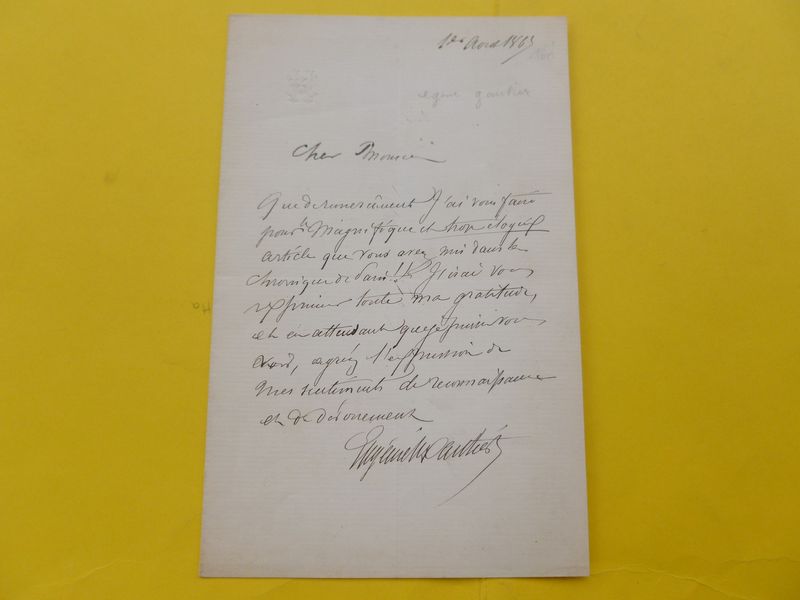 1er Avril 1863
gautier
Cher Monsieur
Que de remerciement J'ai vous faire
pour le Magnifique et trop élogieux
article que vous avez mis dans la
chronique de Paris!! J'irai vous
exprimer toute ma gratitude,
et en attendant que je puisse vous
voir, agréez l'expression de
mes sentiments de reconnaissance
et de dévouement
Eugène Gautier